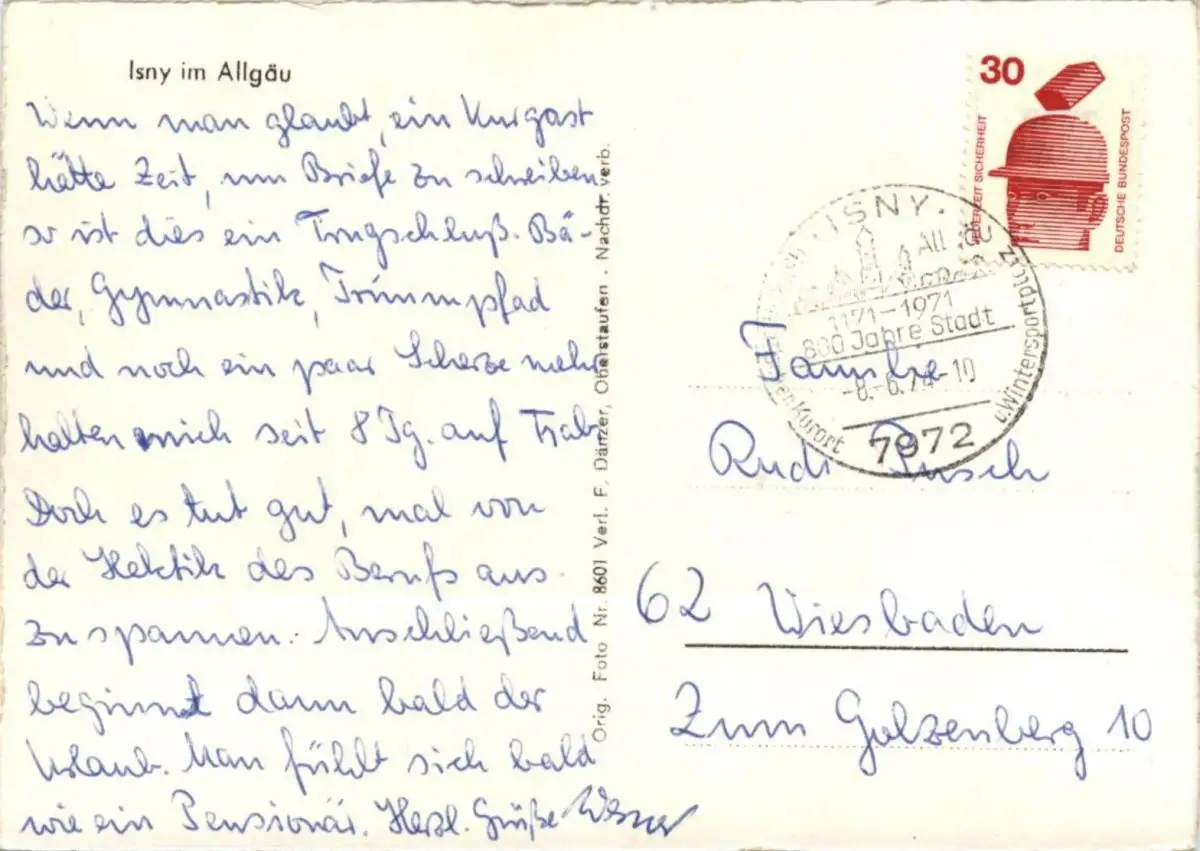 Isny im Allgäu
Wenn man glaubt, ein Kurgast
hätte Zeit, um Briefe zu schreiben
so ist dies ein Trugschluß. Bä-
der, Gymnastik, Trimmpfad
und noch ein paar Scherze mehr
halten mich seit 8 Tg. auf Trab.
Doch es tut gut, mal von
der Hektik des Berufs aus-
zuspannen. Anschließend
beginnt dann bald der
Urlaub. Man fühlt sich bald
wie ein Pensionär. Herzl. Grüße Werner
Orig. Foto Nr. 8601 Verl. F. Dänzer, Oberstaufen - Nachdr. verb.
30
JEDERZEIT SICHERHEIT
DEUTSCHE BUNDESPOST
ISNY
Allgäu
1171-1971
800 Jahre Stadt
-8.-6.74-10
7972
Kurort
u. Wintersportplatz
Familie
Rudi Pusch
62 Wiesbaden
Zum Golzenberg 10